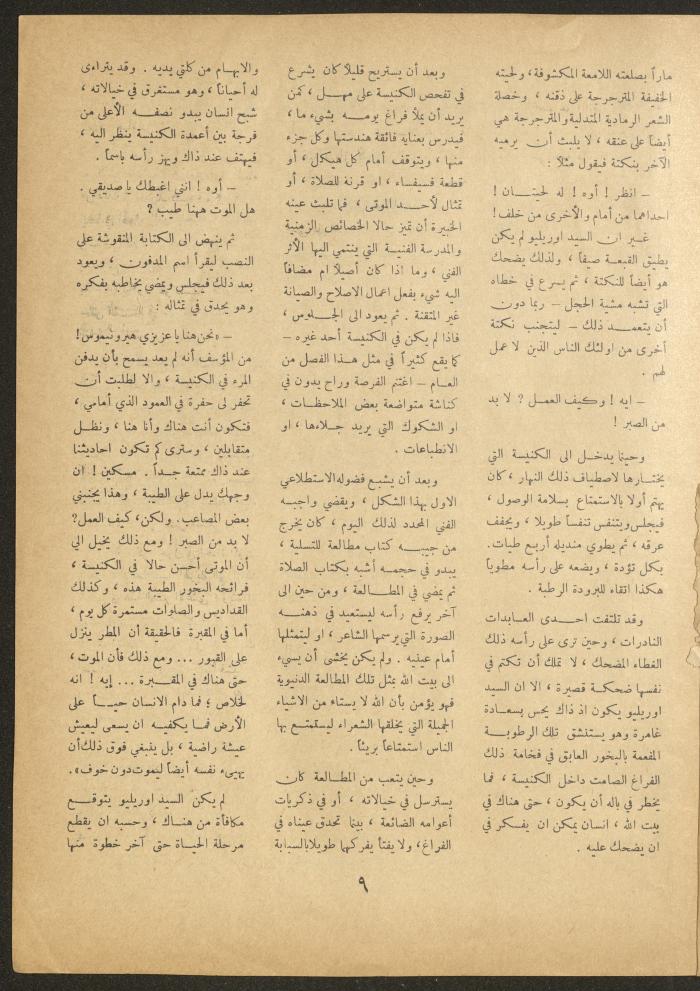 ماراً بصلعته اللامعة المكشوفة، ولحيته
الخفيفة المترجرجة على ذقنه، وخصلة
الشعر الرمادية المتدلية والمترجرجة هي
أيضاً على عنقه، لا يلبث أن يرميه
الآخر بنكتة فيقول مثلاً :
ـ انظر ! أوه ! له لحيتان !
احداهما من أمام والأخرى من خلف!
غير ان السيد اوريليو لم يكن
يطيق القبعة صيفاً، ولذلك يضحك
هو أيضاً للنكتة، ثم يسرع في خطاه
التي تشبه مشية الحجل ـ ربما دون
أن يتعمد ذلك ـ ليتجنب نكتة
أخرى من اولئك الناس الذين لا عمل
لهم .
ـ ايه ! وكيف العمل ؟ لا بد
من الصبر !
وحينما يدخل الى الكنيسة التي
يختارها لاصطياف ذلك النهار، كان
يهتم أولا بالاستمتاع بسلامة الوصول،
فيجلس ويتنفس تنفساً طويلا، ويجفف
عرقه، ثم يطوي منديله أربع طيات.
بكل تؤدة، ويضعه على رأسه مطوياً
هكذا اتقاء للبرودة الرطبة .
وقد تلتفت احدى العابدات
النادرات، وحين ترى على رأسه ذلك
الغطاء المضحك، لا تملك أن تكتم في
نفسها ضحكة قصيرة، الا ان السيد
اوريليو يكون اذ ذاك يحس بسعادة
غامرة وهو يستنشق تلك الرطوبة
المفعمة بالبخور العابق في فخامة ذلك
الفراغ الصامت داخل الكنيسة، فما
يخطر في باله أن يكون، حتى هناك في
بيت الله، انسان يمكن ان يفكر في
ان يضحك عليه .
وبعد أن يستريح قليلاً كان يشرع
في تفحص الكنيسة على مهل، كمن
يريد أن يملأ فراغ يومه بشيء ما،
فيدرس بعناية فائقة هندستها وكل جزء
منها، ويتوقف أمام كل هيكل، أو
قطعة فسيفساء، او قرنة للصلاة، أو
تمثال لأحد الموتى، فما تلبث عينه
الخبيرة أن تميز حالا الخصائص الزمنية
والمدرسة الفنية التي ينتمي اليها الأثر
الفني، وما اذا كان أصيلاً ام مضافاً
اليه شيء بفعل اعمال الاصلاح والصيانة
غير المتقنة . ثم يعود الى الجلوس،
فاذا لم يكن في الكنيسة أحد غيره ـ
كما يقع كثيراً في مثل هذا الفصل من
العام ـ اغتنم الفرصة وراح يدون في
كناشة متواضعة بعض الملاحظات،
او الشكوك التي يريد جلاءها، او
الانطباعات .
وبعد أن يشبع فضوله الاستطلاعي
الاول بهذا الشكل، ويقضي واجبه
الفني المحدد لذلك اليوم، كان يخرج
من جيبه كتاب مطالعة للتسلية،
يبدو في حجمه أشبه بكتاب الصلاة
ثم يمضي في المطالعة، ومن حين الى
آخر يرفع رأسه ليستعيد في ذهنه
الصورة التي يرسمها الشاعر، او ليتمثلها
أمام عينيه . ولم يكن يخشى أن يسيء
الى بيت الله بمثل تلك المطالعة الدنيوية
فهو يؤمن بأن الله لا يستاء من الاشياء
الجميلة التي يخلقها الشعراء ليستمتع بها
الناس استمتاعاً بريئاً .
وحين يتعب من المطالعة كان
يسترسل في خيالاته، أو في ذكريات
أعوامه الضائعة، بينما تحدق عيناه في
الفراغ، ولا يفتأ يفركهما طويلا بالسبابة
والابهام من كلتي يديه . وقد يتراءى
له أحياناً، وهو مستغرق في خيالاته،
شبح انسان يبدو نصفه الأعلى من
فرجة بين أعمدة الكنيسة ينظر اليه،
فيهتف عند ذاك ويهز رأسه باسماً .
ـ أوه ! انني اغبطك يا صديقي .
هل الموت ههنا طيب ؟
ثم ينهض الى الكتابة المنقوشة على
النصب ليقرأ اسم المدفون، ويعود
بعد ذلك فيجلس ويمضي يخاطبه بفكره
وهو يحدق في تمثاله :
ـ «نحن هنا يا عزيزي هيرونيموس !
من المؤسف أنه لم يعد يسمح بأن يدفن
المرء في الكنيسة، والا لطلبت أن
تحفر لي حفرة في العمود الذي أمامي،
فتكون أنت هناك وأنا هنا، ونظل
متقابلين، وسترى كم تكون احاديثنا
عند ذاك ممتعة جداً . مسكين ! ان
وجهك يدل على الطيبة، وهذا يجنبني
بعض المصاعب. ولكن، كيف العمل؟
لا بد من الصبر ! ومع ذلك يخيل الي
أن الموتى أحسن حالا في الكنيسة،
فرائحة البخور الطيبة هذه، وكذلك
القداديس والصلوات مستمرة كل يوم،
أما في المقبرة فالحقيقة أن المطر ينزل
على القبور ... ومع ذلك فأن الموت،
حتى هناك في المقبرة ... إيه ! انه
لخلاص ؛ فما دام الانسان حياً على
الأرض فما يكفيه ان يسعى ليعيش
عيشة راضية، بل ينبغي فوق ذلك أن
يهيىء نفسه أيضاً ليموت دون خوف».
لم يكن السيد اوريليو يتوقع
مكافأة من هناك، وحسبه ان يقطع
مرحلة الحياة حتى آخر خطوة منها
٩